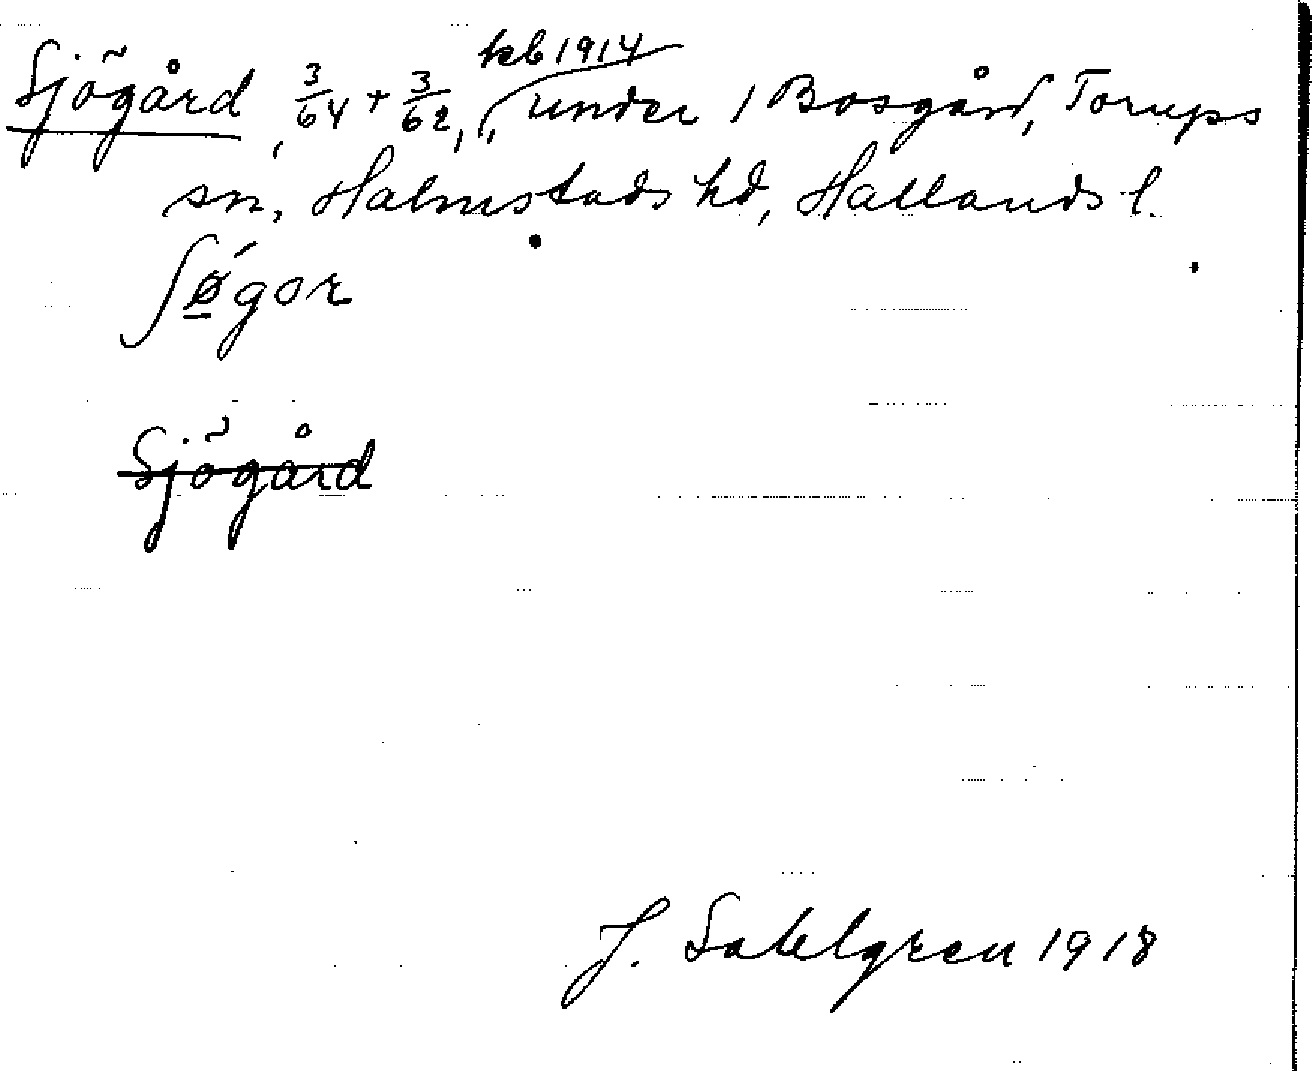 kb 1914
Sjögård, 3/64 + 3/62, under 1 Bosgård, Torups
sn, Halmstads hd, Hallands l.
ʃǿ̱gor
Sjögård
J. Sahlgren 1918